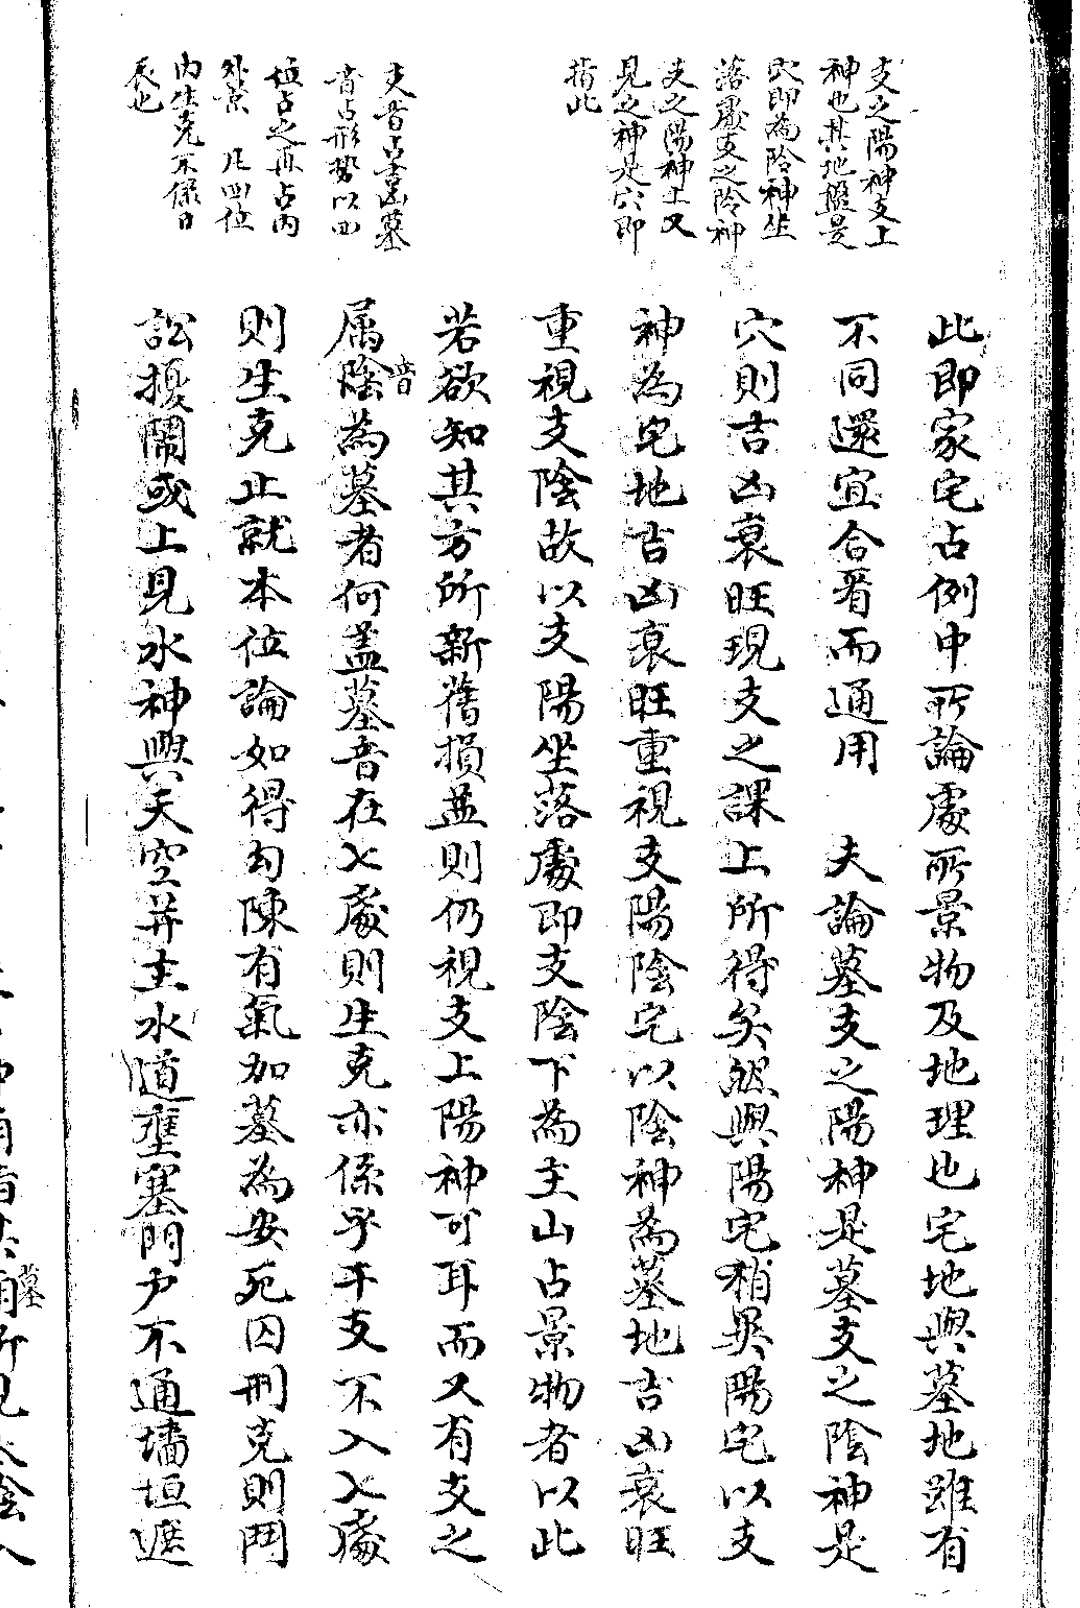 支之陽神支上
神也其地盤是
穴即為陰神坐
落處支之陰神
支之陽神上又
見之神是穴即
指此
夫音占吉凶墓
音占形勢以四
位占之再占內
外景 凡四位
內生克不保日
辰也
此即家宅占例中所論處所景物及地理也宅地與墓地雖有
不同還宜合看而通用 夫論墓支之陽神是墓支之陰神是
穴則吉凶衰旺現支之課上所得矣然與陽宅稍異陽宅以支
神為宅地吉凶衰旺重視支陽陰宅以陰神為墓地吉凶衰旺
重視支陰故以支陽坐落處即支陰下為主山占景物者以此
若欲知其方所新舊損益則仍視支上陽神可耳而又有支之
属陰音為墓者何盖墓音在七處則生克亦係乎干支不入七處
則生克止就本位論如得勾陳有氣加墓為安死囚刑克則鬥
訟擾鬧或上見水神與天空并主水道壅塞門户不通墻垣遮